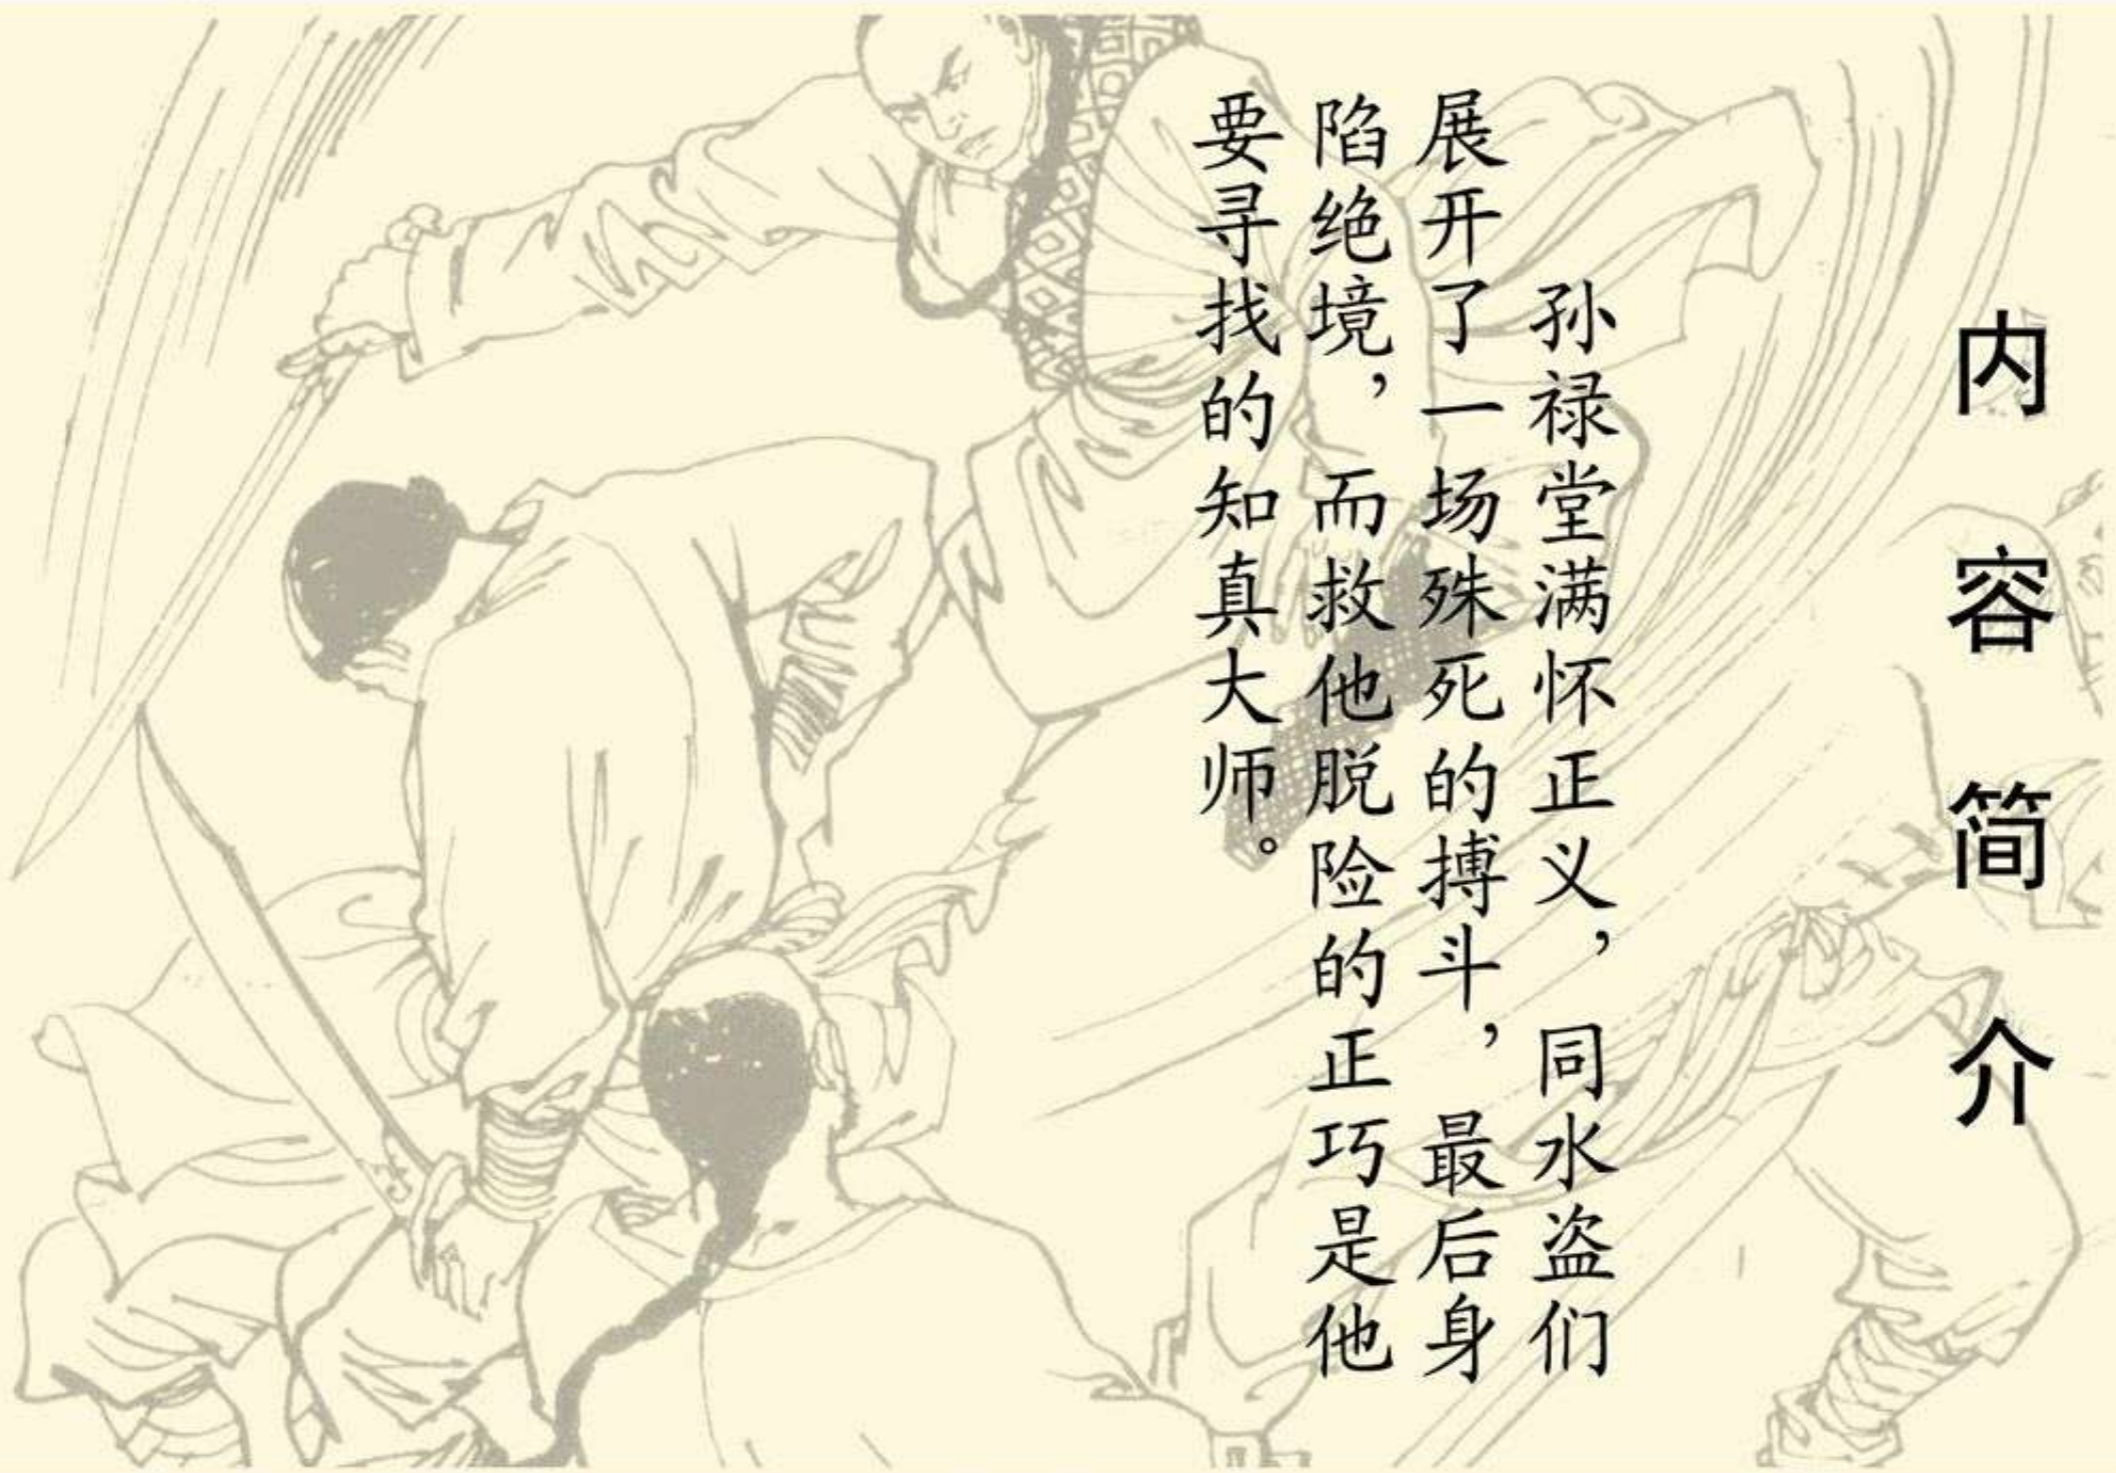 内容简介
孙禄堂满怀正义，同水盗们
展开了一场殊死的搏斗，最后身
陷绝境，而救他脱险的正巧是他
要寻找的知真大师。